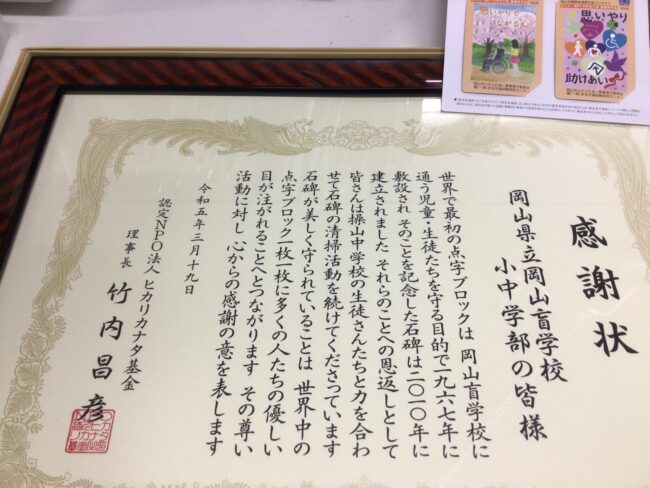 感謝状
岡山県立岡山盲学校
小中学部の皆様
世界で最初の点字ブロックは 岡山盲学校に
通う児童・生徒たちを守る目的で一九六七年に
敷設され そのことを記念した石碑は二〇一〇年に
建立されました それらのことへの恩返しとして
皆さんは操山中学校の生徒さんたちと力を合わ
せて石碑の清掃活動を続けてくださっています
石碑が美しく守られていることは 世界中の
点字ブロック一枚一枚に多くの人たちの優しい
目が注がれることへとつながります その尊い
活動に対し 心からの感謝の意を表します
令和五年三月十九日
認定NPO法人 ヒカリカナタ基金
理事長 竹内昌彦
思いやりで
つながる心
思いやり
助けあい